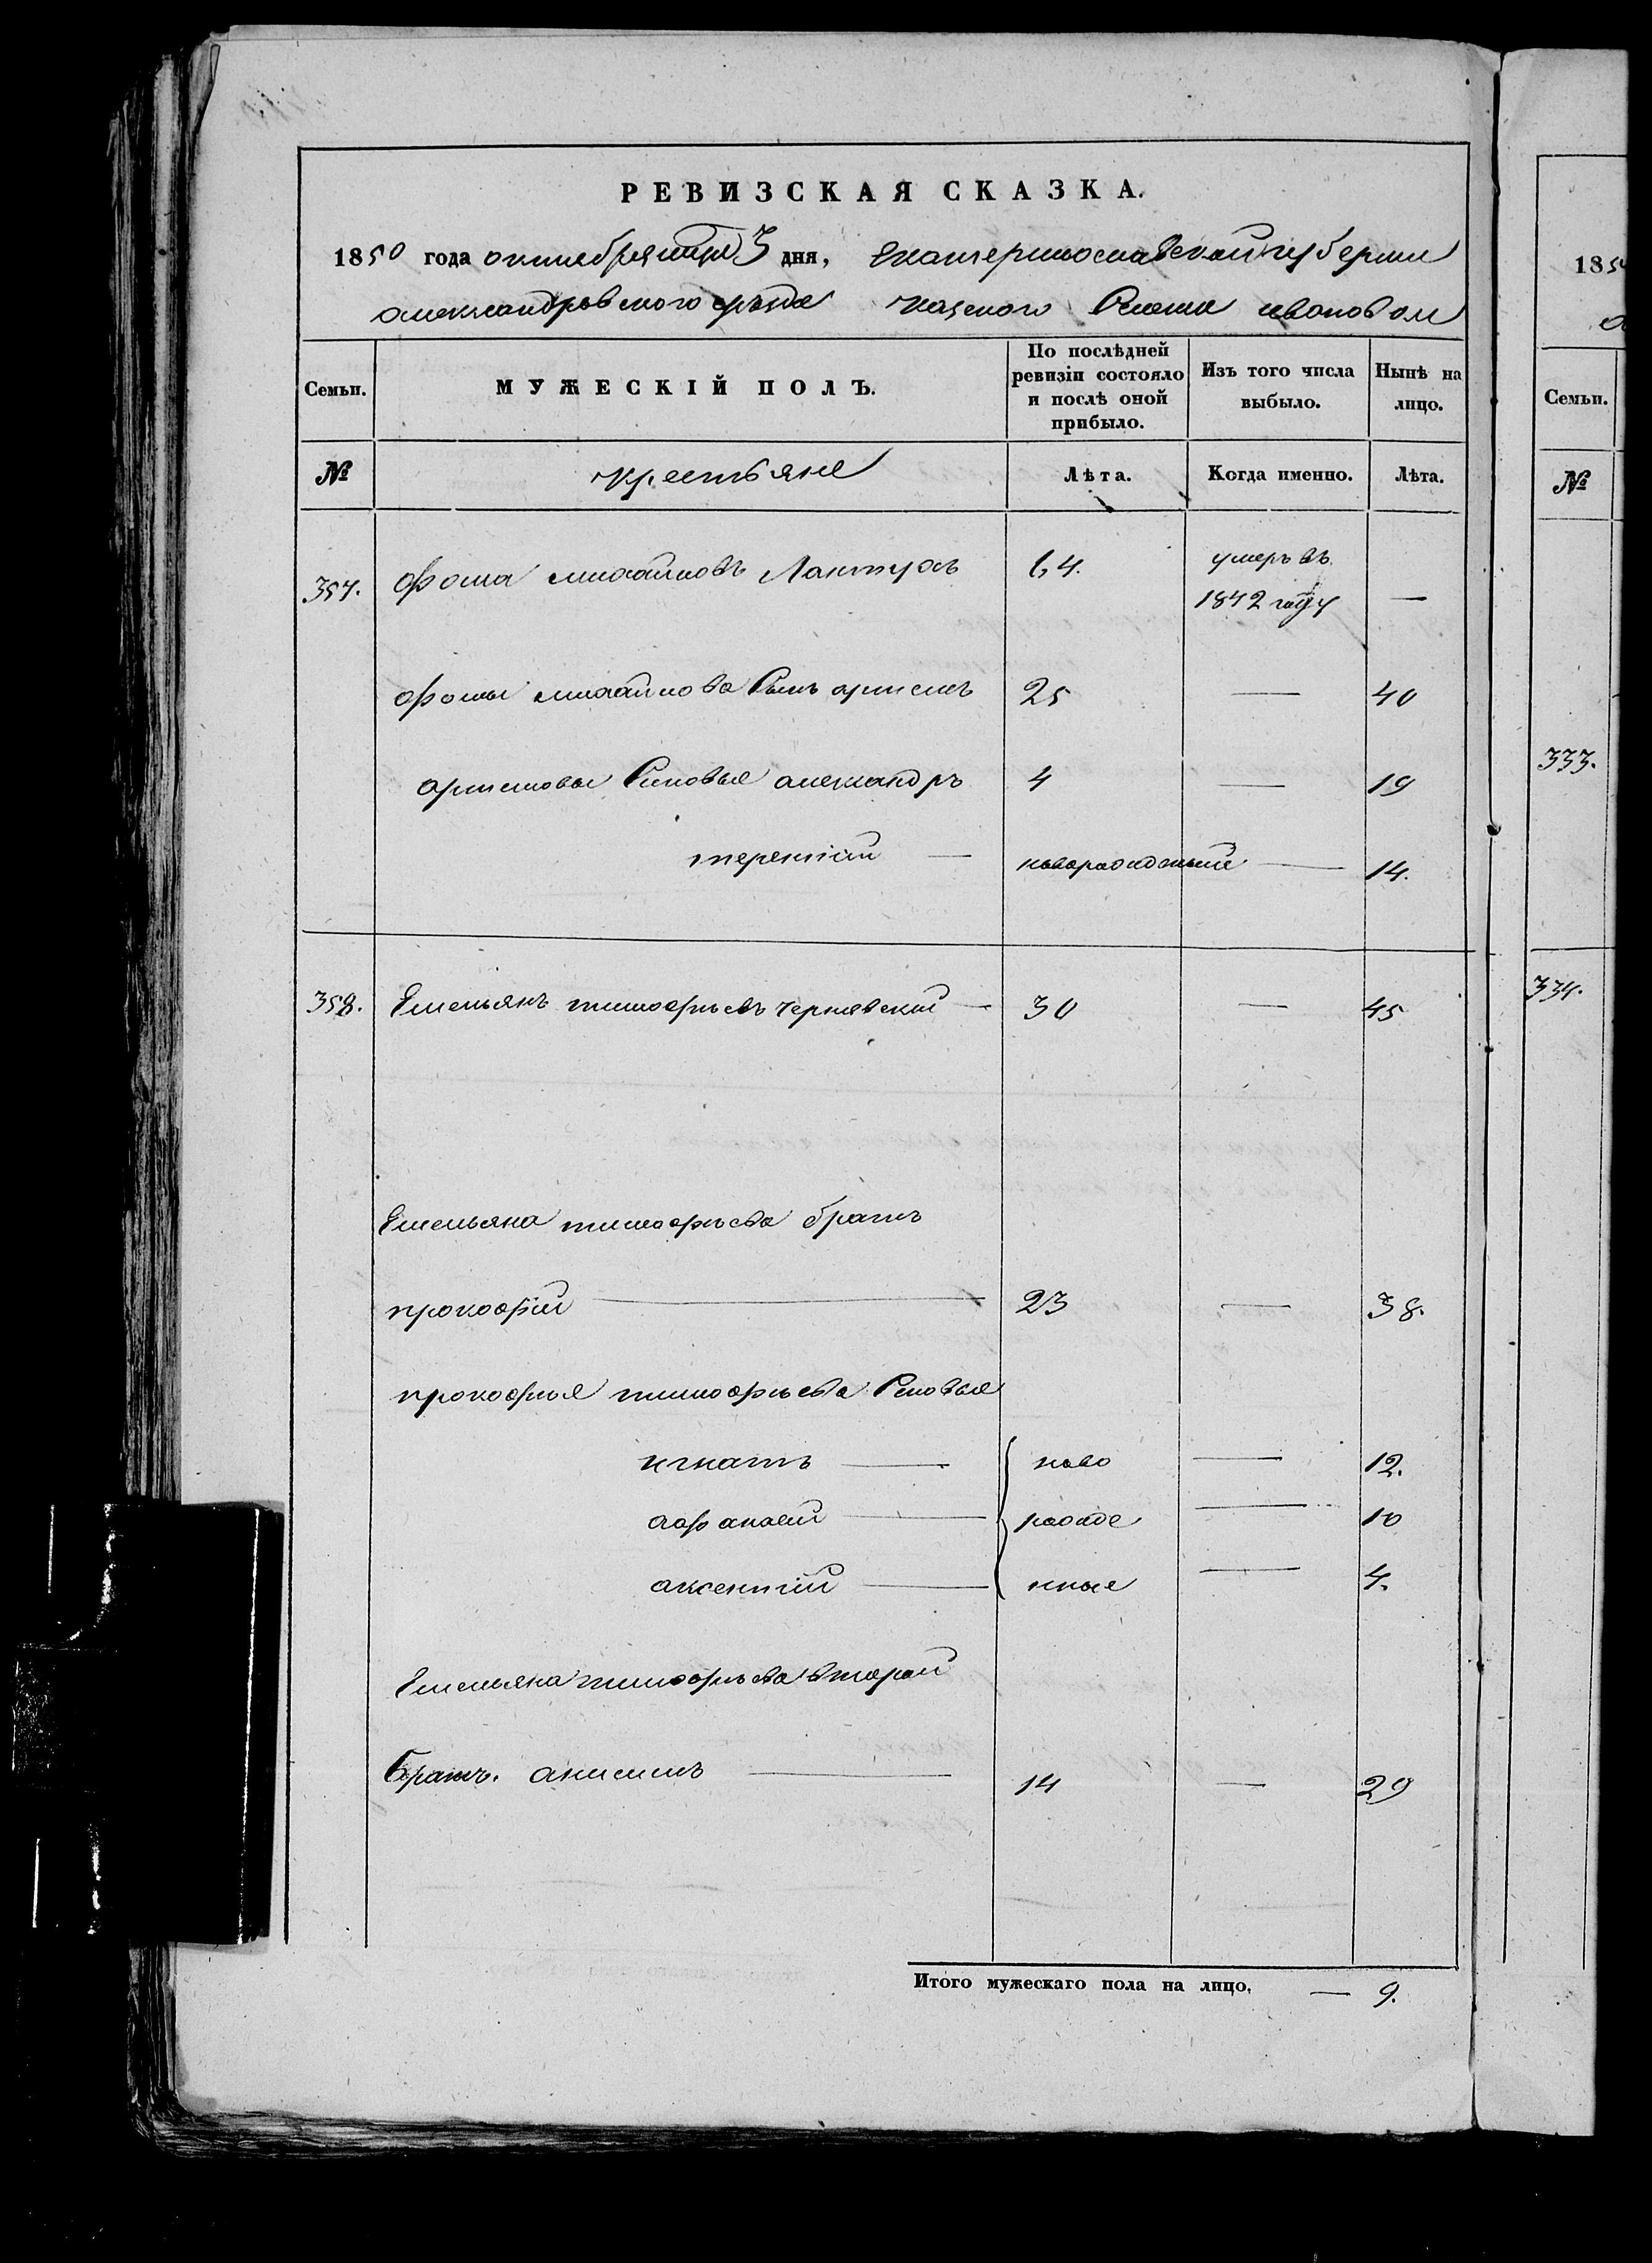 РЕВИЗСКАЯ СКАЗКА.
1850 года октября 3 дня, Екатеринославской губернии
александровского уезда казеного Селения ивановки
Семьи.
МУЖЕСКІЙ ПОЛЪ.
По послѣдней ревизіи состояло и послѣ оной прибыло.
Изъ того числа выбыло.
Нынѣ на лицо.
№
крестьяне
Лѣта.
Когда именно.
Лѣта.
357. Фома михайловъ Лантухъ 64. умеръ въ 1842 году —
Фомы михайлова Сынъ артемъ 25 — 40
артемовы Сыновья александръ 4 — 19
терентій — новорожденый — 14.
358. Емельянъ тимофѣевъ чернявский — 30 — 45
Емельяна тимофѣева братъ
прокофій — 23 — 38.
прокофья тимофѣева Сыновья
игнатъ — ново — 12.
афанасий — рожде — 10
аксентий — нные — 4.
Емельяна тимофѣева второй
братъ. анисимъ — 14 — 29
Итого мужескаго пола на лицо, — 9.
185
Семьи.
№
333.
334.